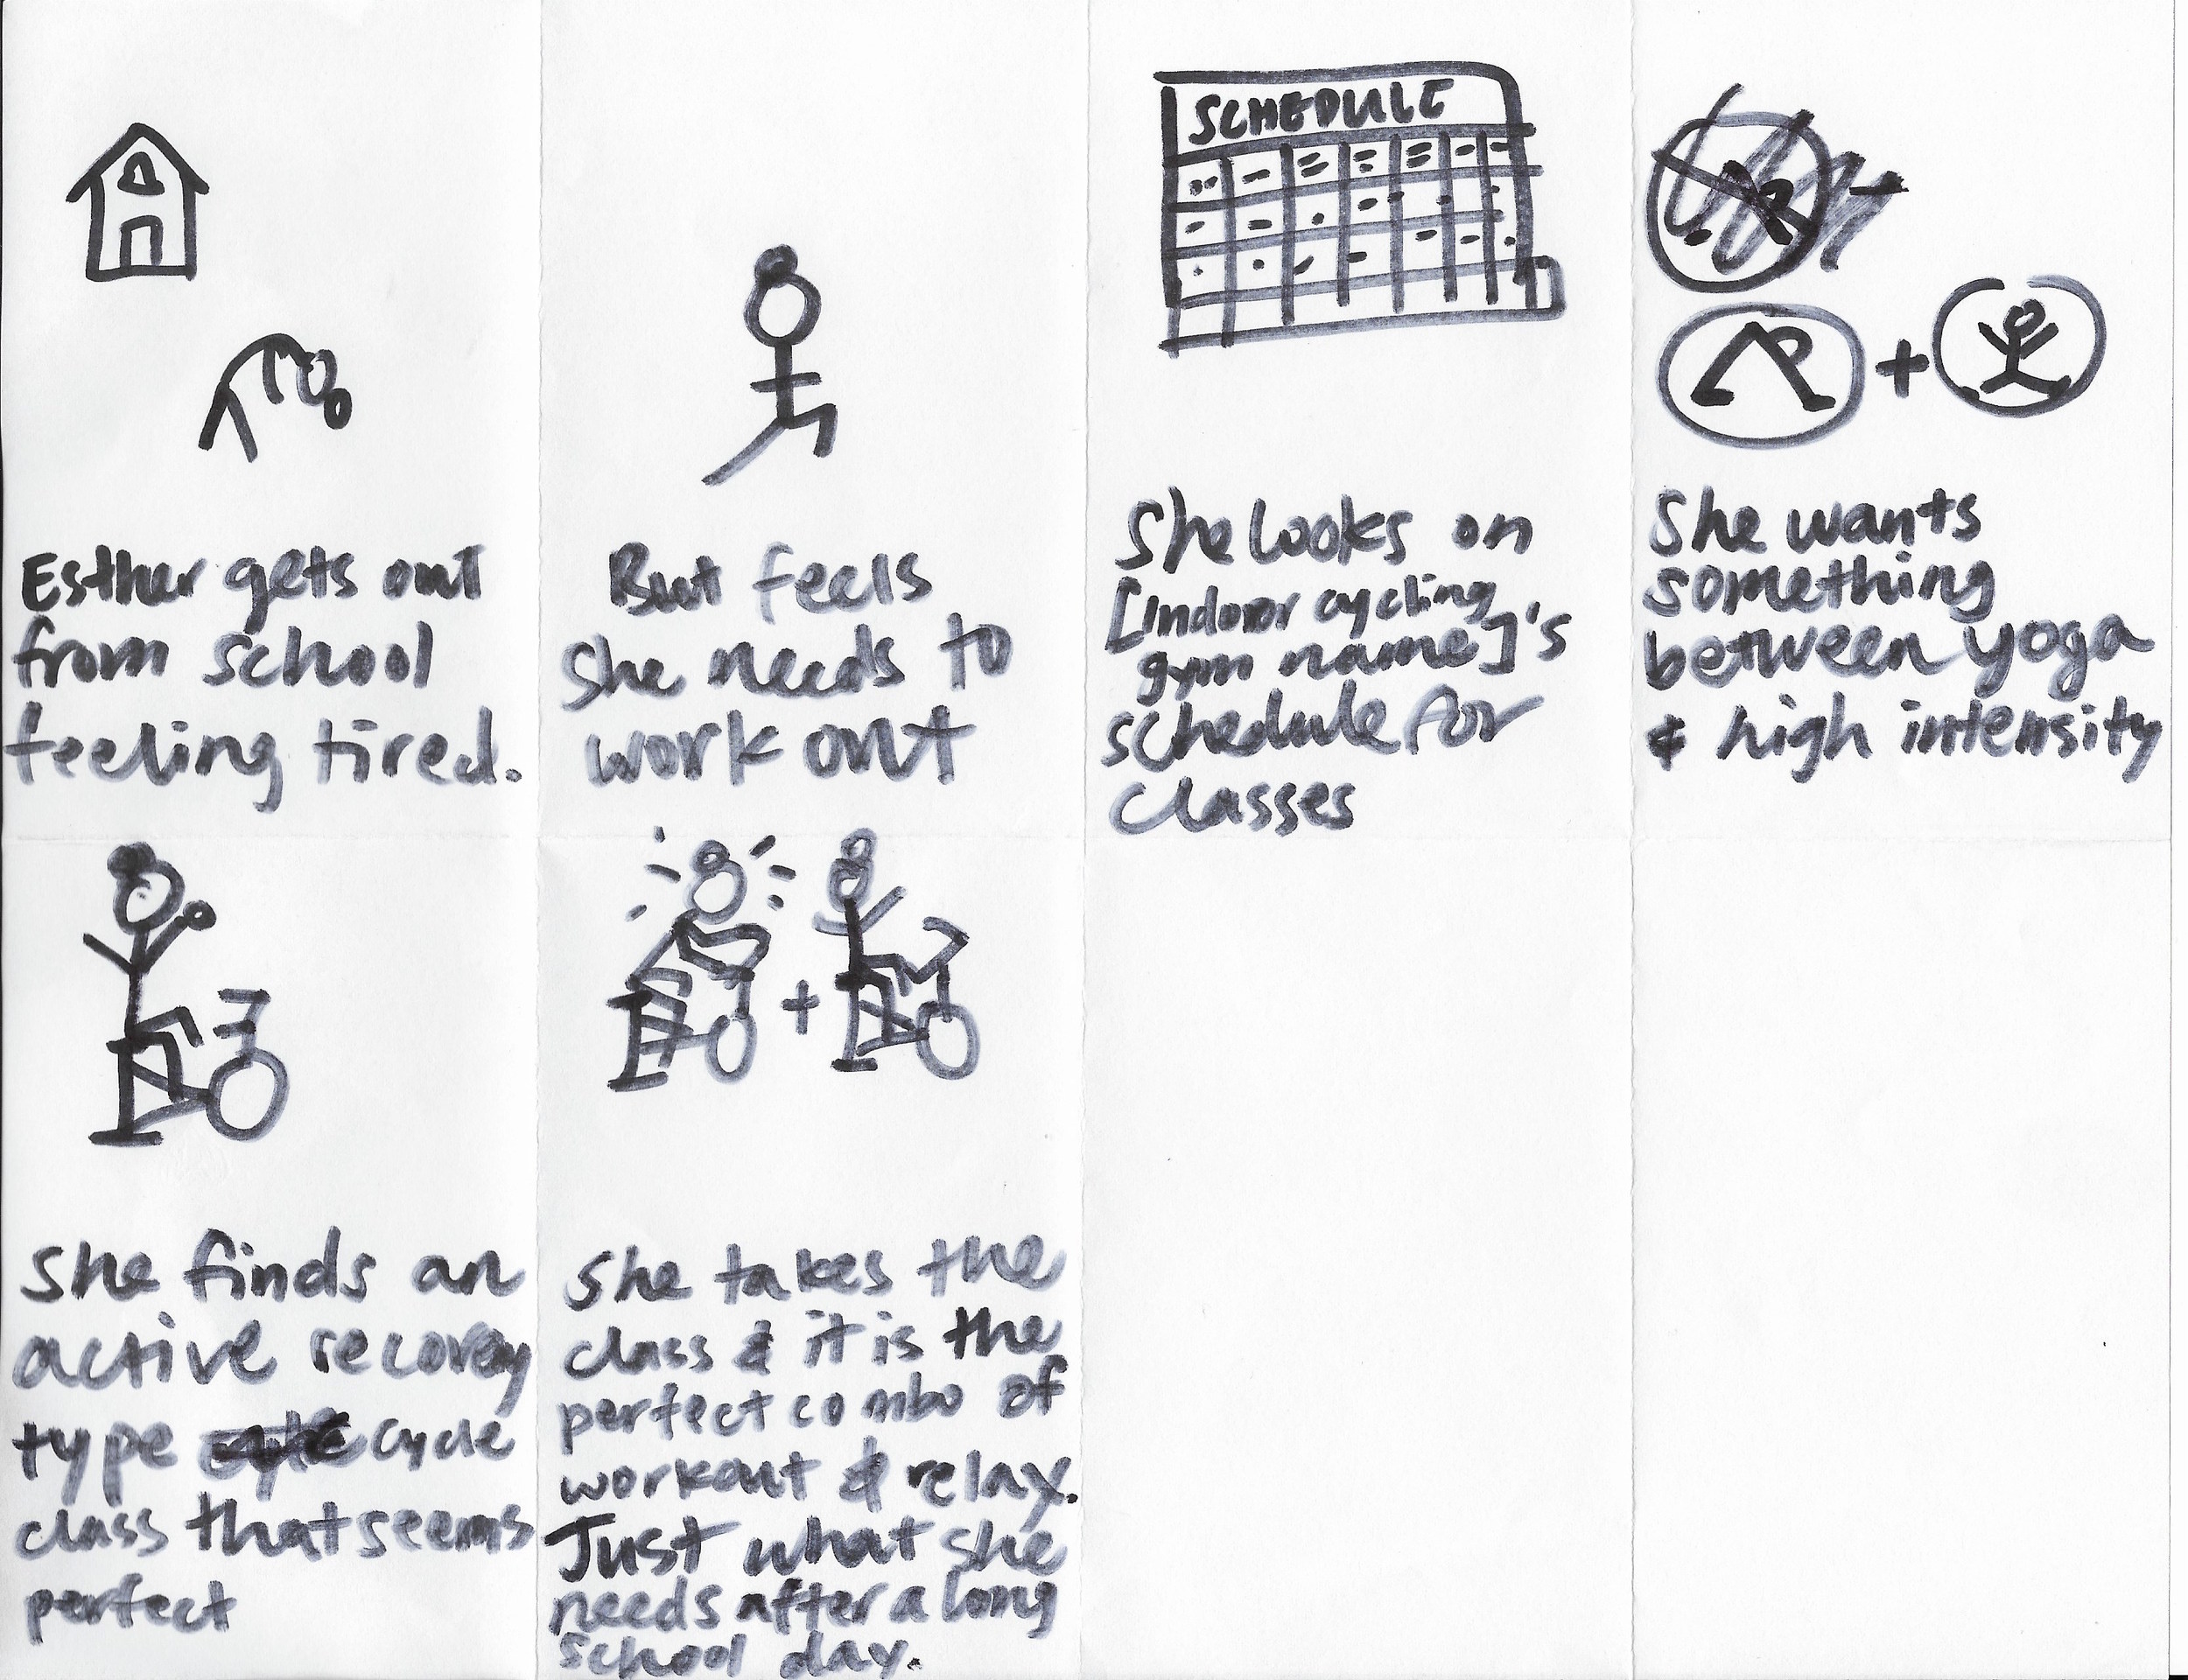 Esther gets out
from school
feeling tired.
But feels
she needs to
work out
SCHEDULE
She looks on
[Indoor cycling
gym name]'s
schedule for
classes
She wants
something
between yoga
& high intensity
She finds an
active recovery
type cycle
class that seems
perfect
She takes the
class & it is the
perfect combo of
workout & relax.
Just what she
needs after a long
school day.